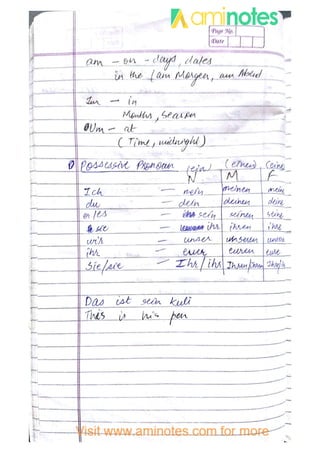 aminotes
Page No.
Date
am - on - days, dates
in the (am Morgen, am Abend
Im - in
Months, season
Um - at
( Time, midnight )
Possessive Pronoun (ein) (einen) (eine
N M F
Ich - mein meinen mein
du - dein deinen deine
er/es - sein seinen seine
sie - ihr ihren ihre
wir - unser unseren
ihr - euer euren eure
Sie/sie - Ihr/ihr Ihren/ihren
Das ist sein kuli
This is his pen
Visit www.aminotes.com for more